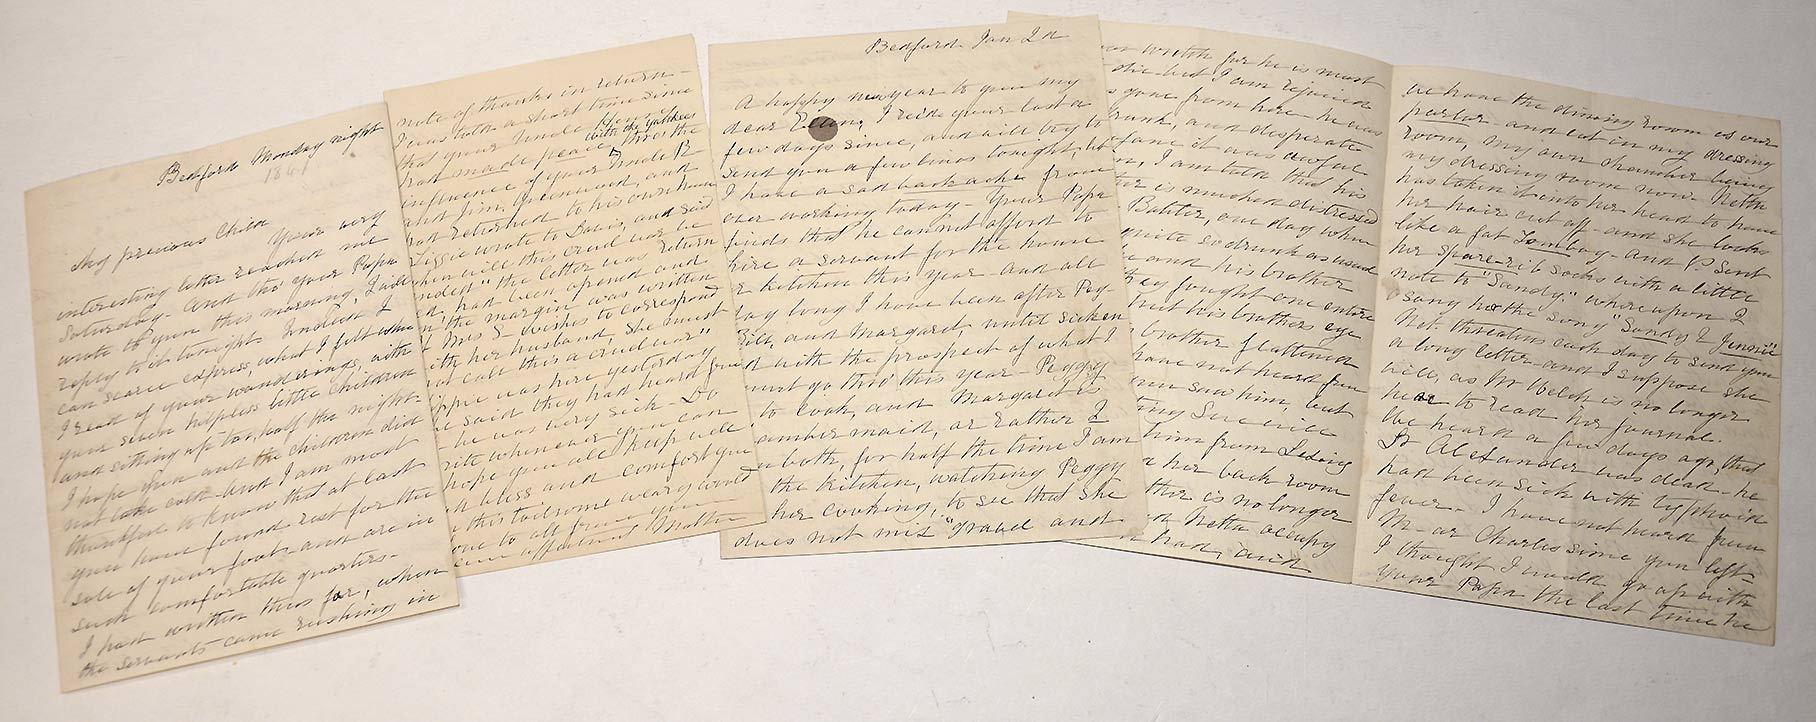 Bedford Monday night
1861
My precious Child
Your very
interesting letter reached me
Saturday - And tho' your Papa
wrote to you this morning, I will
reply to it tonight. Indeed I
can scarce express, what I felt when
I read of your wanderings, with
your seven helpless little children
and sitting up too, half the night -
I hope you and the children did
not take cold - and I am most
thankful to know that at last
you have found rest for the
sole of your foot - and are in
such comfortable quarters -
I had written thus far, when
the servants came rushing in
note of thanks in return -
I was told a short time since
that your Uncle
with the yankees
had made peace thro the
influence of your Uncle B-
and Jim, Greenwood, and
had returned to his own home
Lizzie wrote to Davis, and said
when will this cruel war be
ended" the letter was return
ed, had been opened and
on the margin was written
if Mrs S- wishes to correspond
with her husband, she must
not call this a cruel war"
was here yesterday
he said they had heard from
he was very sick - Do
write whenever you can
hope you all keep well
bless and comfort you
in this toilsome weary world
Love to all from your
affectionate Mother
Bedford Jan 2d
A happy new year to you my
dear Ellen, I recd your last a
few days since, and will try to
send you a few lines tonight, tho
I have a sad backache from
over working today - Your Papa
finds that he cannot afford to
hire a servant for the house
or kitchen this year - and all
day long I have been after Peg-
Bill, and Margaret, until sicken
ed with the prospect of what I
must go thro' this year - Peggy
to cook, and Margaret is
chamber maid, or rather I
am both, for half the time I am
in the kitchen, watching Peggy
her cooking, to see that she
does not mix "gravel and
wretch for he is must
die - but I am rejoiced
is gone from here - he was
drunk, and desperate
fane it was awful
I am told that his
is much distressed
one day when
quite so drunk as usual
and his brother
they fought one entire
but his brothers eye
brother flattened
have not heard from
saw him, but
ting Sue will
him from Lediy
her back room
ther is no longer
and Netta occupy
had, and
we have the dining room as our
parlor - and eat in my dressing
room, my own chamber being
my dressing room now - Netta
has taken it into her head to have
her hair cut off - and she looks
like a fat Tomboy - and P. sent
her spare-rib socks with a little
note to "Sandy" whereupon I
song her the song "Sandy & Jennie"
Net. threatens each day to send you
a long letter - and I suppose she
will, as Mr Welch is no longer
here to read her journal.
We heard a few days ago, that
Dr Alexander was dead - he
had been sick with typhoid
fever - I have not heard from
M- or Charles since you left -
I thought I would go up with
your Papa the last time he